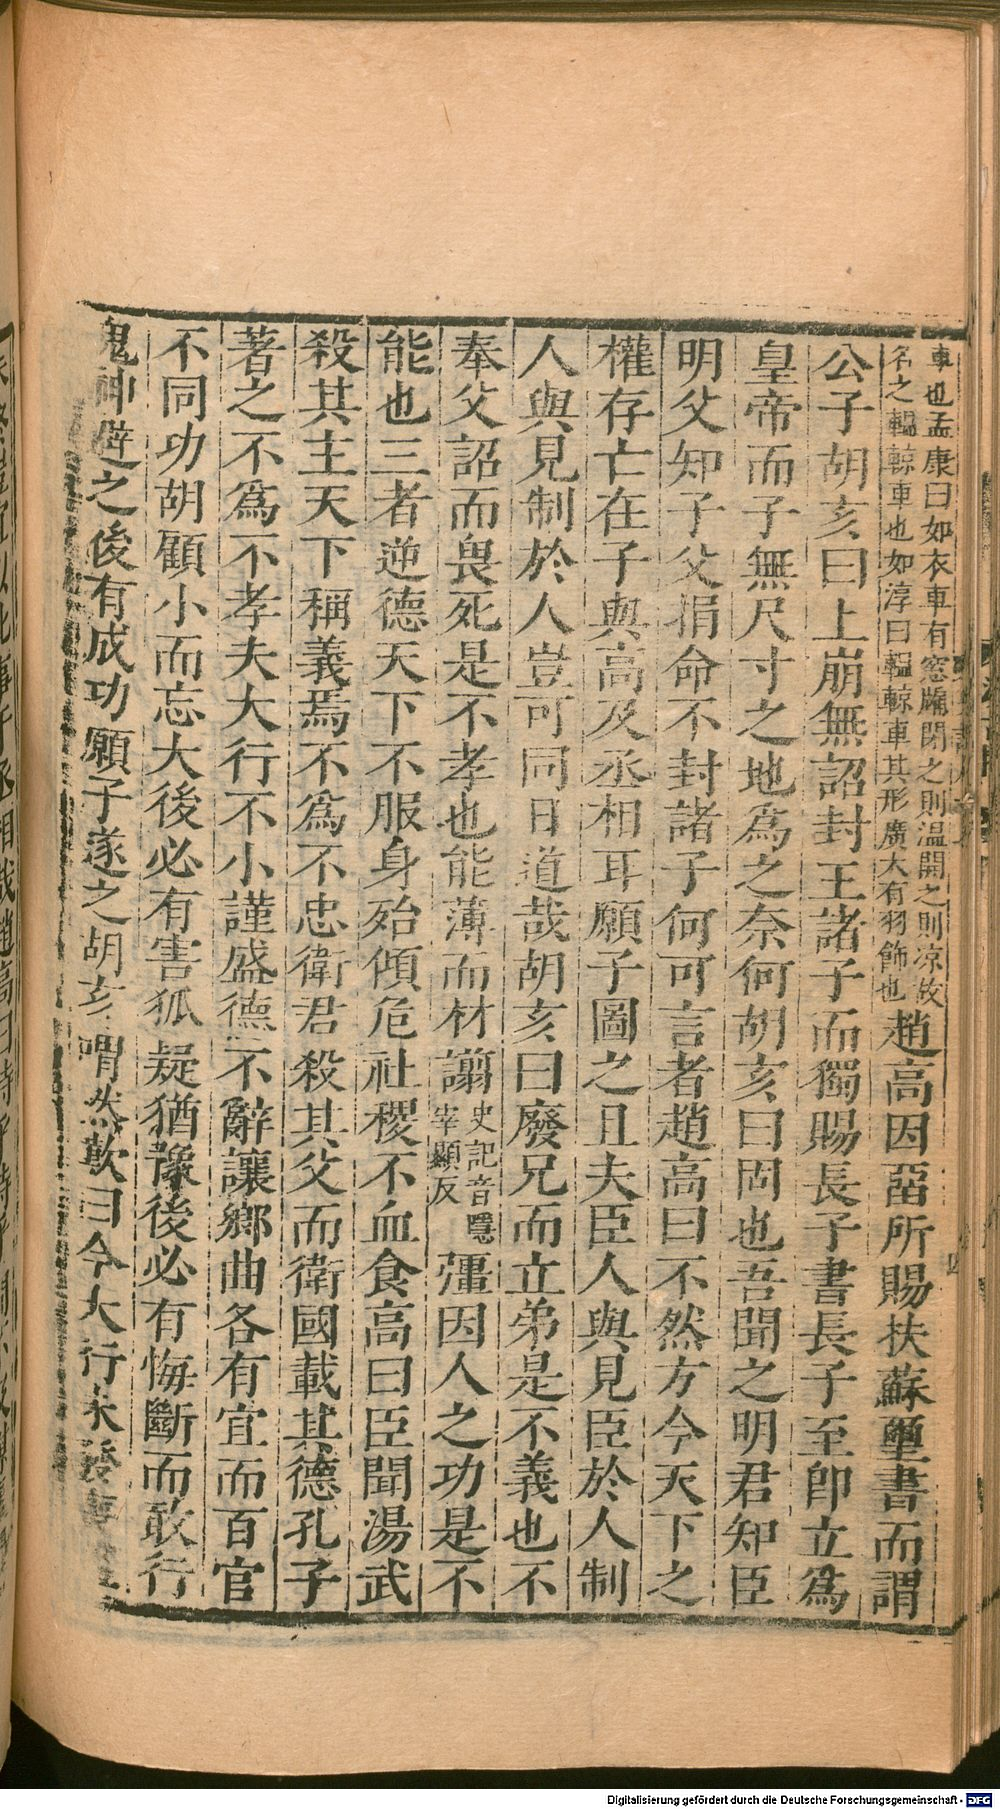 車也孟康曰如衣車有窓牖閉之則溫開之則凉故
名之轀輬車也如淳曰轀輬車其形廣大有羽飾也
趙高因畱所賜扶蘇璽書而謂
公子胡亥曰上崩無詔封王諸子而獨賜長子書長子至卽立爲
皇帝而子無尺寸之地爲之奈何胡亥曰固也吾聞之明君知臣
明父知子父捐命不封諸子何可言者趙高曰不然方今天下之
權存亡在子與高及丞相耳願子圖之且夫臣人與見臣於人制
人與見制於人豈可同日道哉胡亥曰廢兄而立弟是不義也不
奉父詔而畏死是不孝也能薄而材譾史記音隱宰顯反彊因人之功是不
能也三者逆德天下不服身殆傾危社稷不血食高曰臣聞湯武
殺其主天下稱義焉不爲不忠衛君殺其父而衛國載其德孔子
著之不爲不孝夫大行不小謹盛德不辭讓鄉曲各有宜而百官
不同功胡顧小而忘大後必有害狐疑猶豫後必有悔斷而敢行
鬼神避之後有成功願子遂之胡亥喟然歎曰今大行未發
Digitalisierung gefördert durch die Deutsche Forschungsgemeinschaft - DFG